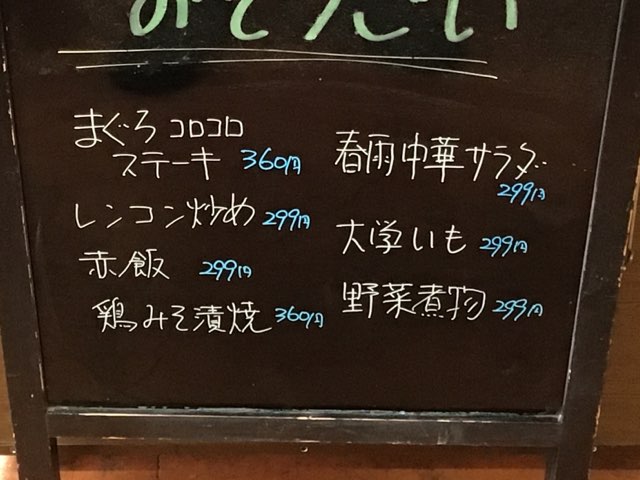 まぐろコロコロ
ステーキ 360円
レンコン炒め 299円
赤飯 299円
鶏みそ漬焼 360円
春雨中華サラダ
299円
大学いも 299円
野菜煮物 299円